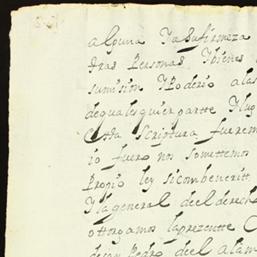 alguna Ya Su firmeza
tras Personas Ybienes
sumision Ypoderio alas
dequales quier partte Ylug
Esta Scriptura fuerem
io fuero nos somettemos
Propio ley sicombeneritt
Yla general del derech
ottorgamos la prezentte
Pedro del alam